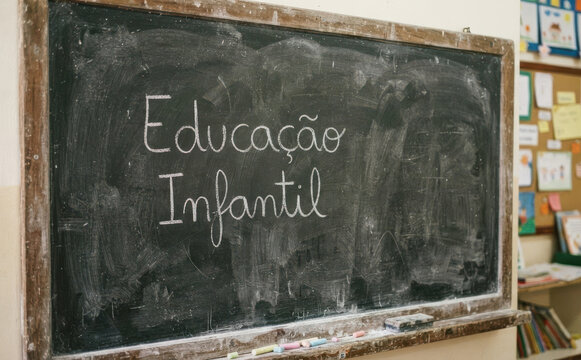 Educação
Infantil